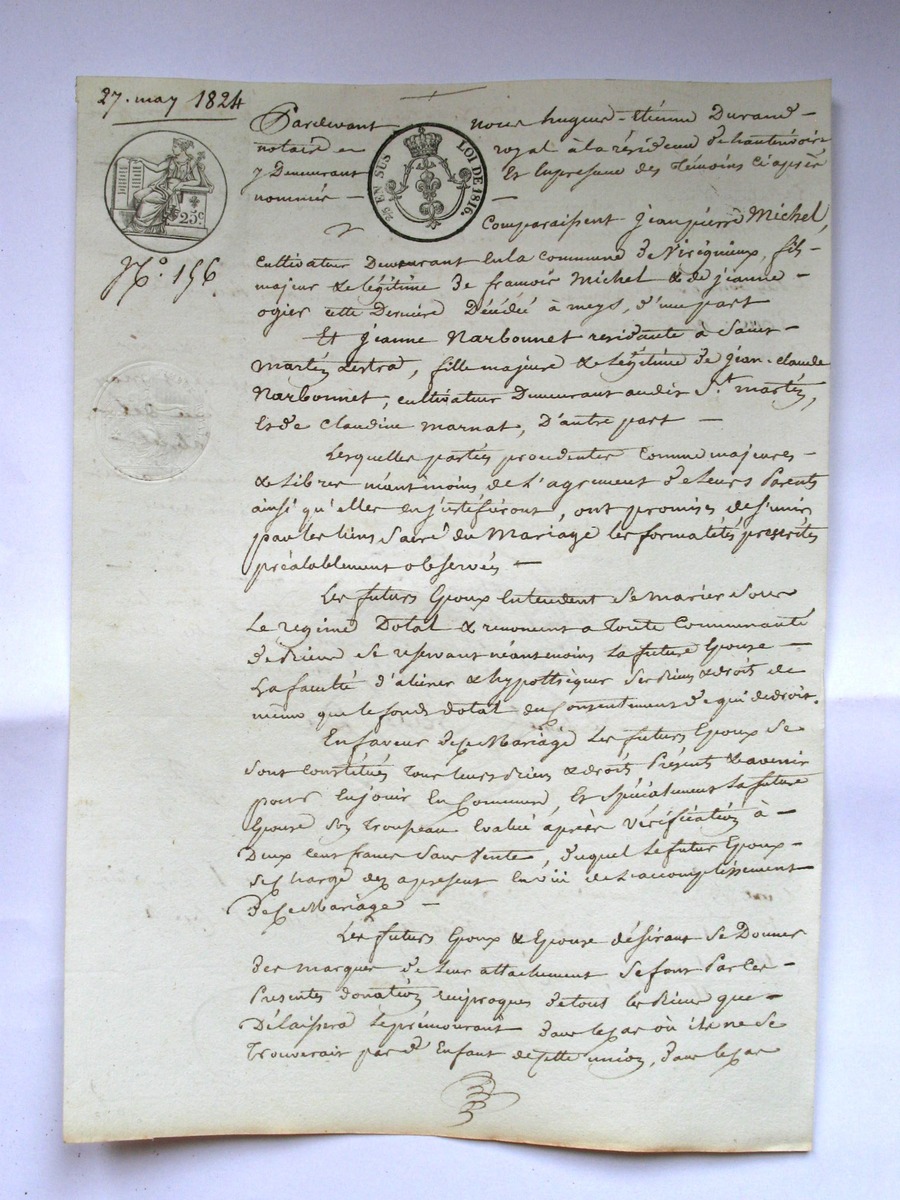 27. may 1824
Pardevant nous hugue-Étienne Durand -
notaire royal à la résidence de hauterivoire
y Demeurant Et En presence des Témoins Ci après
nommés -
25c
EN SUS LOI DE 1816.
Comparaissent jean pierre Michel,
N.o 156
Cultivateur Demeurant En la commune de Virigneux, fils -
majeur & légitime de francois Michel & de jeanne -
ogier cette Derniere Décédée à meys, d'une part
Et jeanne Narbonnet residante à Saint-
Martin Lestra, fille majeure & Légitime de jean-claude
Narbonnet, cultivateur Demeurant audit St. martin,
Et de Claudine Marnat, D'autre part -
Lesquelles parties procedantes Comme majeures -
& Libres néantmoins de L'agrement de Leurs Parents
ainsi qu'elles en justifiront, ont promises de s'unir
par les liens Sacré du Mariage les formalités prescrites
préalablement observés -
Les futurs Epoux Entendent Se marier Sous
Le regime Dotal & renoncent a Toute Communauté
de Biens Se reservant néantmoins La future Epouse -
La faculté d'aliéner & hypothéquer Ses Biens & droits de
même que le fonds dotal du Consentement de qui de droit.
En faveur de ce Mariage Les futurs Epoux Se
Sont Constitués Tous leurs Biens & droits Présents & avenir
pour En jouir En Commun, Et Spécialement La future
Epouse Son Trousseau Evalué après Vérification à -
Deux Cent francs Sans Vente, duquel Le futur Epoux -
Se Charge des apresent En vüe de L'accomplissement
De Ce Mariage -
Les futurs Epoux & Epouse désirant Se Donner
Des marques de Leur attachement Se font Par Ces -
Presentes donation reciproques de tout les Biens que -
Délaissera Le prémourant dans le cas où il ne Se
Trouverait pas d'Enfant de Cette union, dans le cas